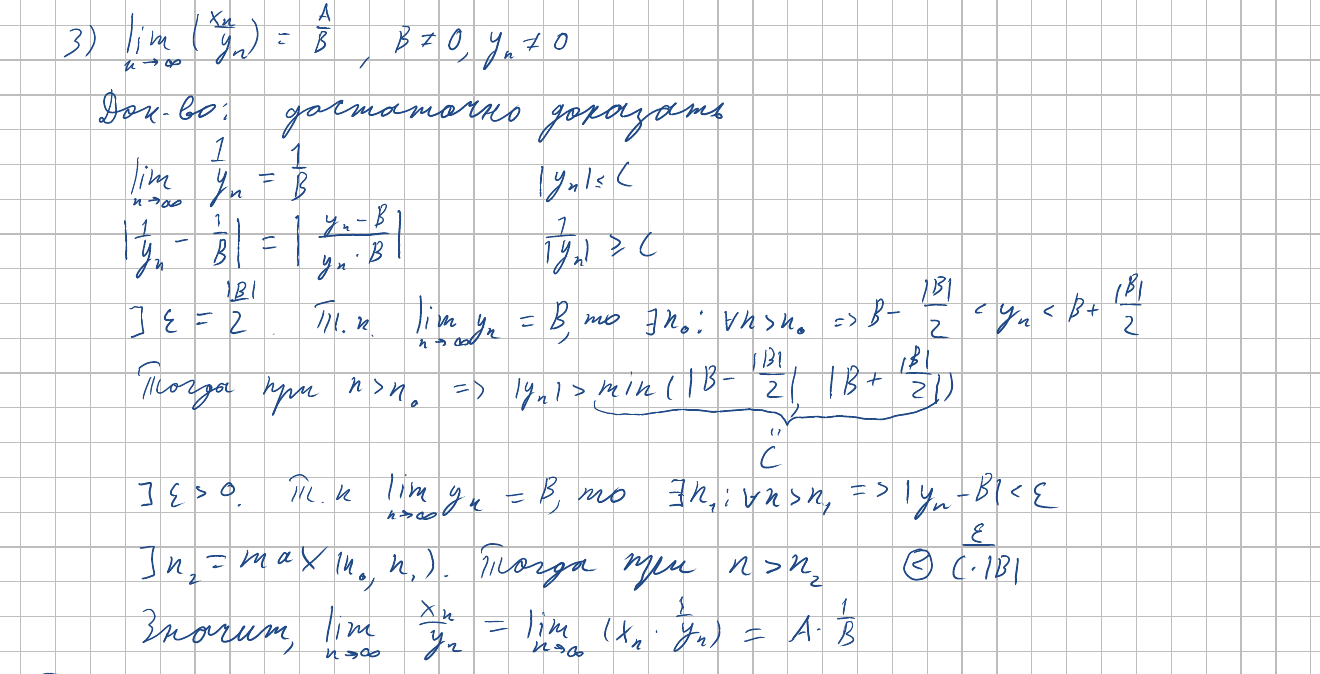 3) lim_{n→∞} (x_n/y_n) = A/B, B ≠ 0, y_n ≠ 0
Док-во: достаточно доказать
lim_{n→∞} 1/y_n = 1/B |y_n| ≤ C
|1/y_n - 1/B| = |(y_n - B)/(y_n · B)| 1/|y_n| ≥ C
] ε = |B|/2. Т.к. lim_{n→∞} y_n = B, то ∃n₀: ∀n>n₀ => B - |B|/2 < y_n < B + |B|/2
Тогда при n>n₀ => |y_n| > min(|B - |B|/2|, |B + |B|/2|)
"
C
] ε > 0. Т.к lim_{n→∞} y_n = B, то ∃n₁: ∀n>n₁ => |y_n - B| < ε
] n₂ = max(n₀, n₁). Тогда при n>n₂ < ε/(C·|B|)
Значит, lim_{n→∞} x_n/y_n = lim_{n→∞} (x_n · 1/y_n) = A · 1/B